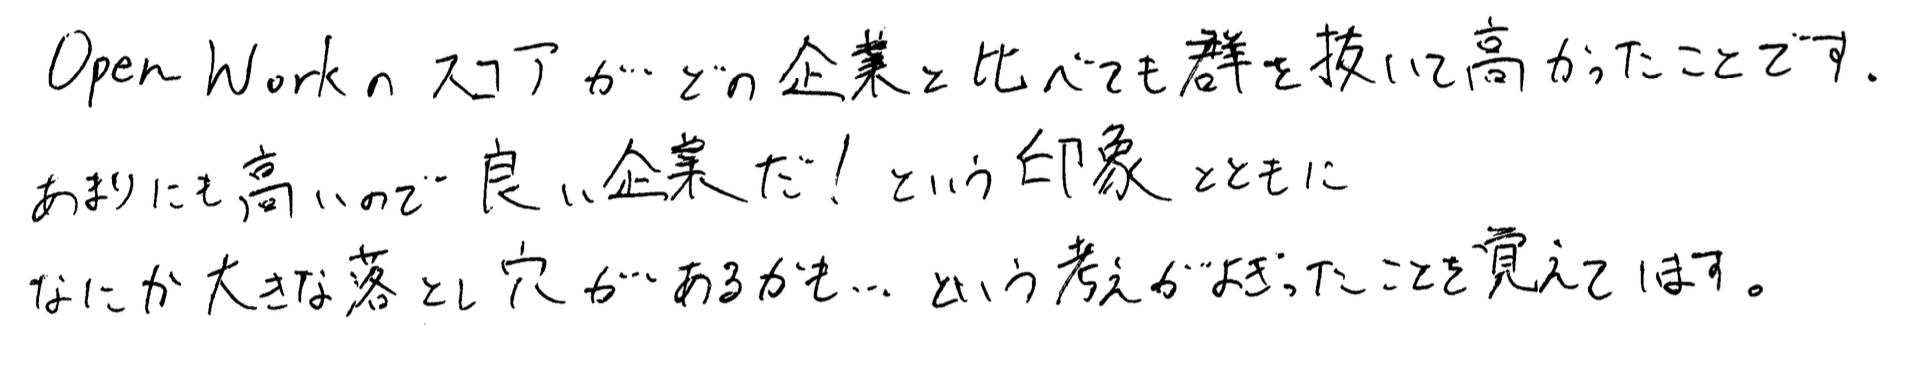 Open Workの スコアが どの企業と比べても群を抜いて高かったことです.
あまりにも高いので 良い企業だ! という印象とともに
なにか大きな落とし穴が あるかも… という考えがよぎったことを覚えてます。